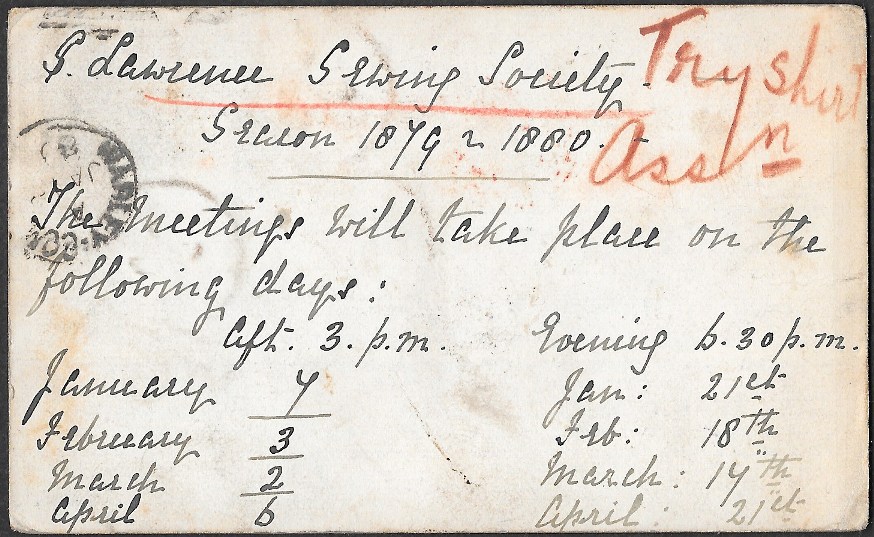 S. Lawrence Sewing Society. Try shirt
Season 1879 & 1880. Assn
The Meetings will take place on the
following days:
Aft. 3. p.m. Evening 6.30 p.m.
January 7 Jan: 21st
February 3 Feb: 18th
March 2 March: 17th
April 6 April: 21st